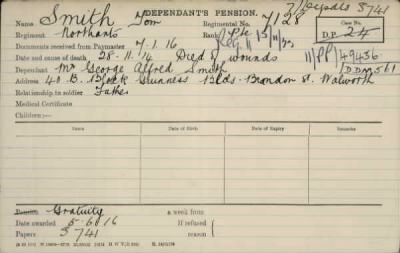 7/Cycals 3741
DEPENDANT'S PENSION.
Name Smith Tom Regimental No. 7128
Regiment Northants Rank Pte Case No.
Documents received from Paymaster 7.1.16 D.P. 24
Date and cause of death 28.11.14 Died of wounds 11/PP/49436
Dependant Mr George Alfred Smith
Address 40 B. Block Guinness Blds. Brandon St. Walworth
Relationship to soldier Father
Medical Certificate
Children:—
Name Date of Birth Date of Expiry Remarks
Pension Gratuity a week from
Date awarded 5-6-16 If refused
Papers 3741 reason